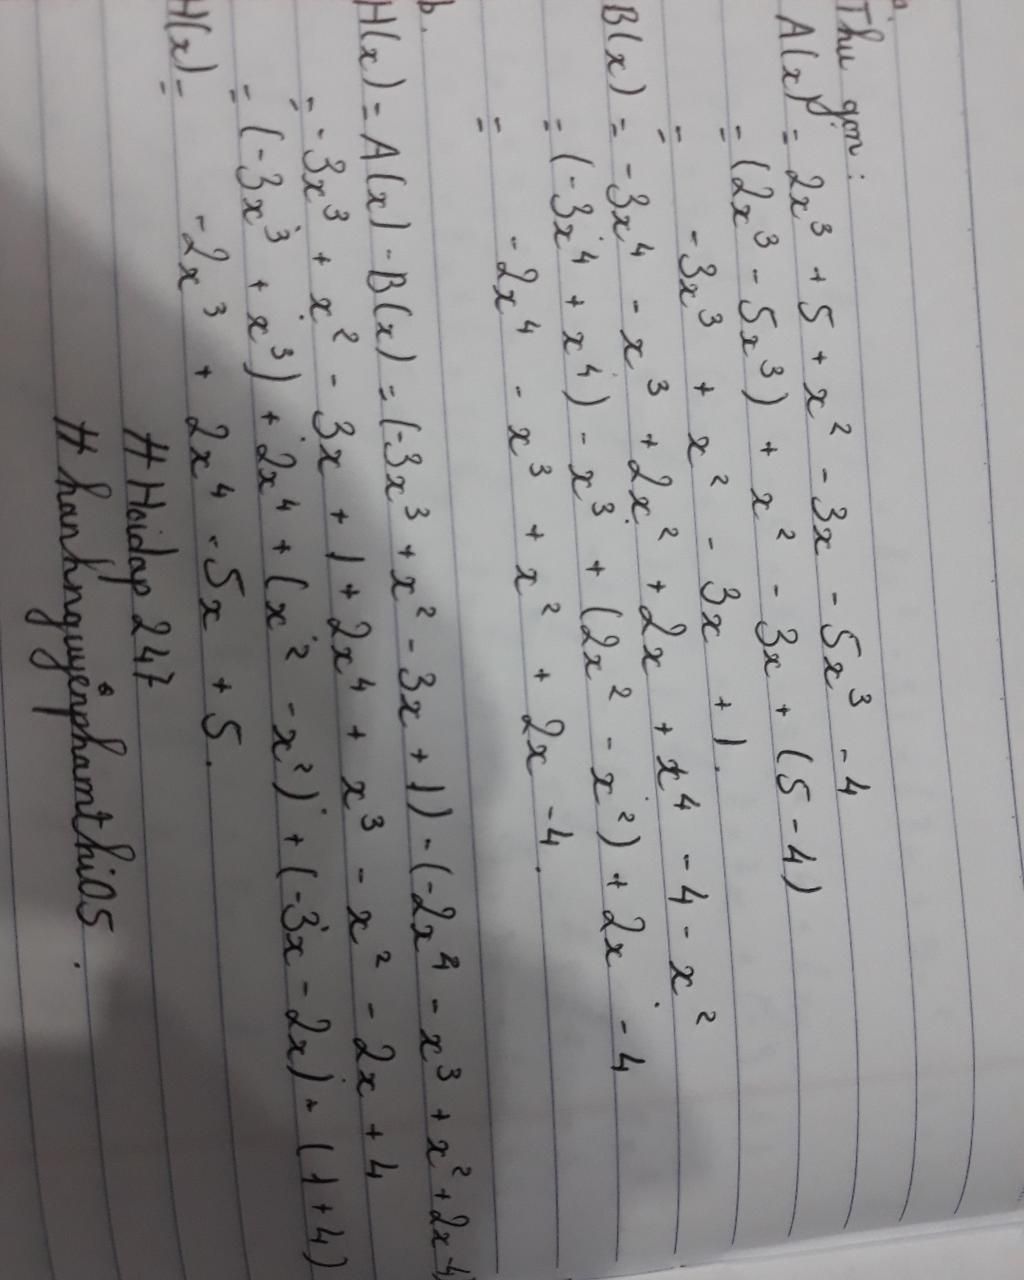 Thu gọn:
A(x) = 2x³ + 5 + x² - 3x - 5x³ - 4
= (2x³ - 5x³) + x² - 3x + (5 - 4)
= -3x³ + x² - 3x + 1.
B(x) = -3x⁴ - x³ + 2x² + 2x + x⁴ - 4 - x²
= (-3x⁴ + x⁴) - x³ + (2x² - x²) + 2x - 4
= -2x⁴ - x³ + x² + 2x - 4.
b.
H(x) = A(x) - B(x) = (-3x³ + x² - 3x + 1) - (-2x⁴ - x³ + x² + 2x - 4)
= -3x³ + x² - 3x + 1 + 2x⁴ + x³ - x² - 2x + 4
= (-3x³ + x³) + 2x⁴ + (x² - x²) + (-3x - 2x) + (1 + 4)
H(x) = -2x³ + 2x⁴ - 5x + 5.
# Hoidap 247
# hanhnguyenphamthi05.